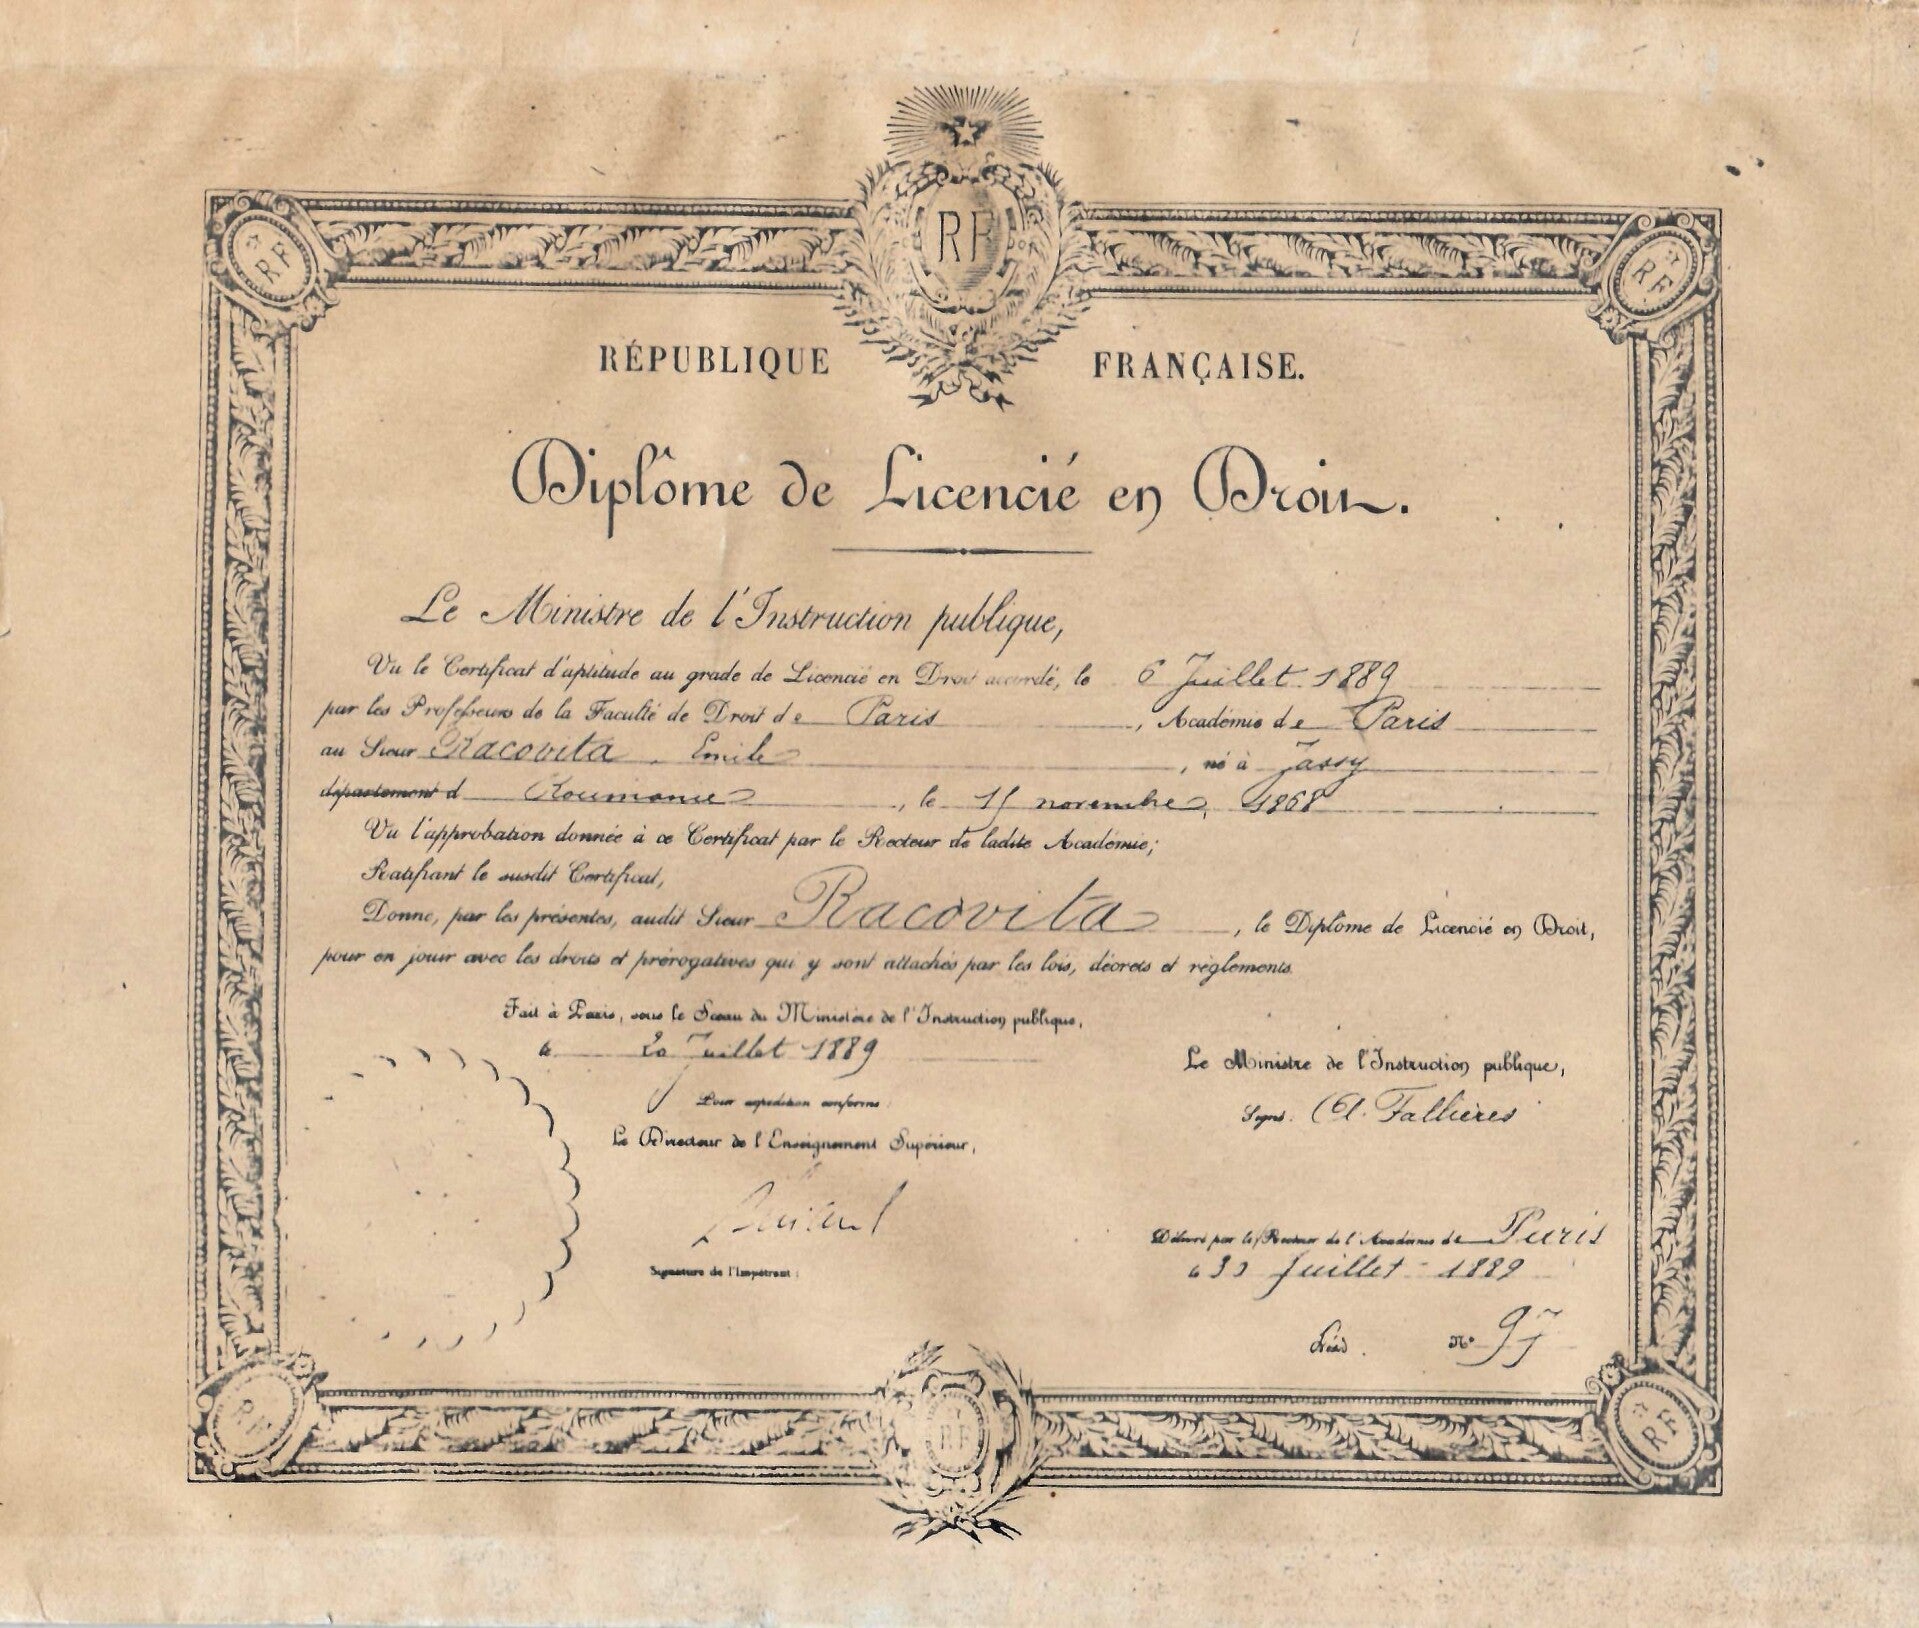 RF
RF
RF
RÉPUBLIQUE FRANÇAISE.
Diplôme de Licencié en Droit.
Le Ministre de l'Instruction publique,
Vu le Certificat d'aptitude au grade de Licencié en Droit accordé, le 6 Juillet 1889
par les Professeurs de la Faculté de Droit de Paris, Académie de Paris
au Sieur Racovita, Emile, né à Jassy
département d Roumanie, le 15 novembre, 1868
Vu l'approbation donnée à ce Certificat par le Recteur de ladite Académie;
Ratifiant le susdit Certificat,
Donne, par les présentes, audit Sieur Racovita, le Diplôme de Licencié en Droit,
pour en jouir avec les droits et prérogatives qui y sont attachés par les lois, décrets et règlements.
Fait à Paris, sous le Sceau du Ministère de l'Instruction publique,
le 20 Juillet 1889
Pour expédition conforme:
Le Directeur de l'Enseignement Supérieur,
Signature de l'Impétrant:
Le Ministre de l'Instruction publique,
Signé: A. Fallières
Délivré par le Recteur de l'Académie de Paris
le 30 Juillet 1889
N° 97
RF
RF
RF